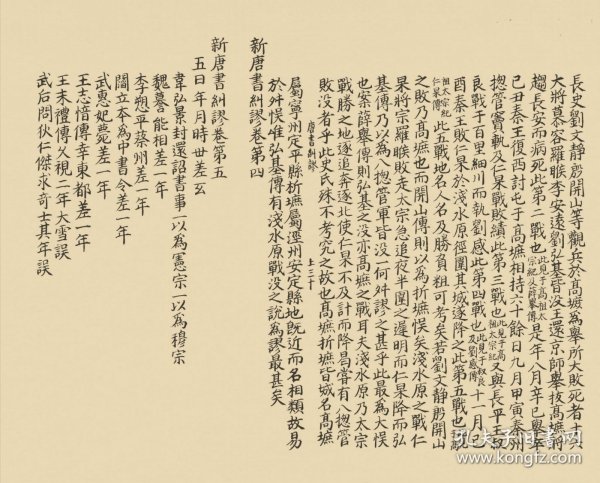 長史劉文靜殷開山等觀兵於高墌為舉所大敗死者十六
大將慕容羅睺李安遠劉弘基皆沒王還京師舉拔高墌將
趨長安而病死此第二戰也此見于高祖太宗紀及薛舉傳是年八月辛巳舉卒
己丑秦王復西討屯于高墌相持六十餘日九月甲寅秦州
揔管竇軌及仁杲戰敗績此第三戰也此見于高祖太宗紀又與長平王叔
良戰于百里細川而執劉感此第四戰也此見于叔良及劉感傳十一月己
酉秦王敗仁杲於淺水原徑圍其城遂降之此第五戰也
祖太宗紀仁杲傳此五戰地名人名及勝負粗可考矣若劉文靜殷開山
之敗乃高墌也而開山傳則以為折墌悞矣淺水原之戰仁
杲將宗羅睺敗走太宗急追夜半圍之遲明而仁杲降而弘
基傳乃以為八揔管軍皆没何舛謬之甚乎此最為大悞
也案薛舉傳則弘基之没亦高墌之戰耳夫淺水原乃太宗
戰勝之地逐追奔逐北使仁杲不及計而降曷嘗有八揔管
敗没者乎此史氏殊不考究之故也高墌折墌皆城名高墌
唐書糾謬
上三十
屬寧州定平縣折墌屬涇州安定縣地既近而名相類故易
於舛悞唯弘基傳有淺水原戰没之説為謬最甚矣
新唐書糾謬卷第四
新唐書糾謬卷第五
五曰年月時世差互
韋弘景封還詔書事一以為憲宗一以為穆宗
魏謩能相差一年
李愬平蔡州差一年
閻立本為中書令差一年
武惠妃薨差一年
王志愔傳幸東都差一年
王求禮傳久視二年大雪誤
武后問狄仁傑求奇士其年誤
孔夫子旧书网
www.kongfz.com